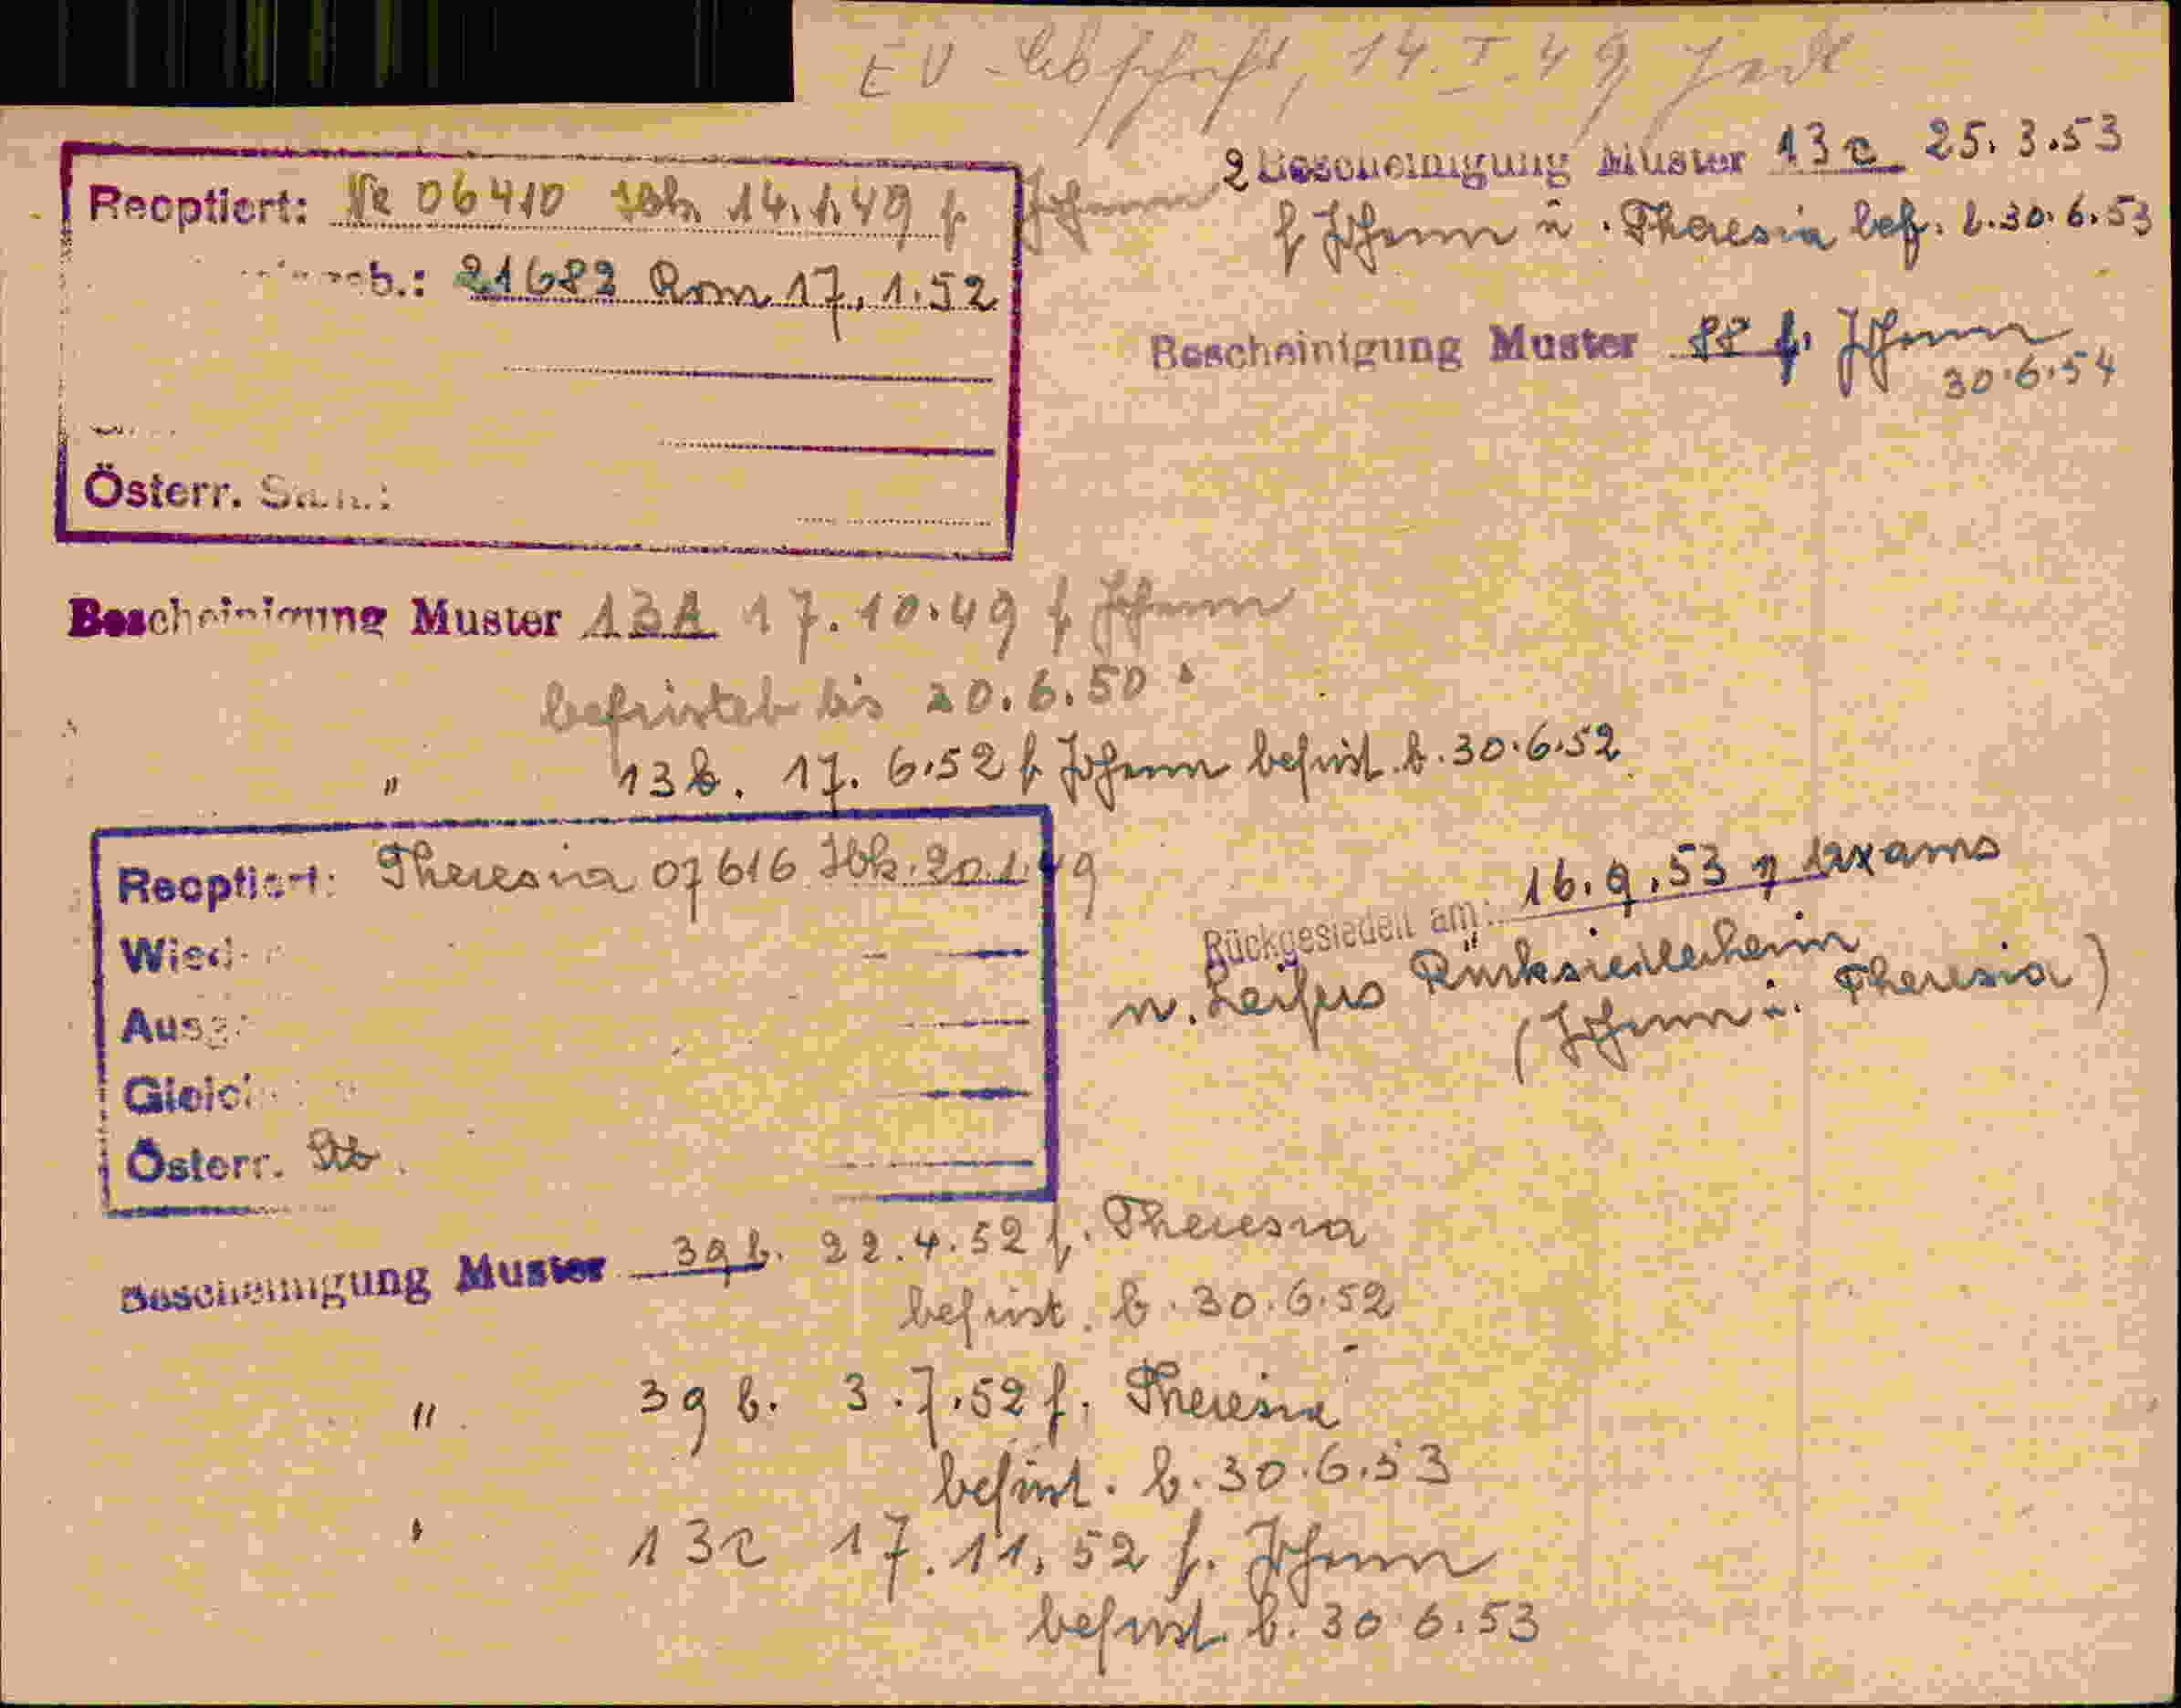 EV-Abschrift, 14.I.49
Reoptiert: Nr 06410 Ibk. 14.1.49 f. Johann
21682 Rom 17.1.52
Österr.
2 Bescheinigung Muster 13c 25.3.53
f Johann u. Theresia bef. b. 30.6.53
Bescheinigung Muster 88 f. Johann
30.6.54
Bescheinigung Muster 13A 17.10.49 f Johann
befristet bis 20.6.50
" 13b. 17.6.52 f Johann befrist. b. 30.6.52
Reoptiert: Theresia 07616 Ibk. 20.1.49
Wied
Ausg
Gleich
Österr.
Rückgesiedelt am: 16.9.53
n. Leifers Rücksiedlerheim
(Johann u. Theresia)
Bescheinigung Muster 39b. 22.4.52 f. Theresia
befrist. b. 30.6.52
" 39b. 3.7.52 f. Theresia
befrist. b. 30.6.53
" 13c 17.11.52 f. Johann
befrist. b. 30.6.53